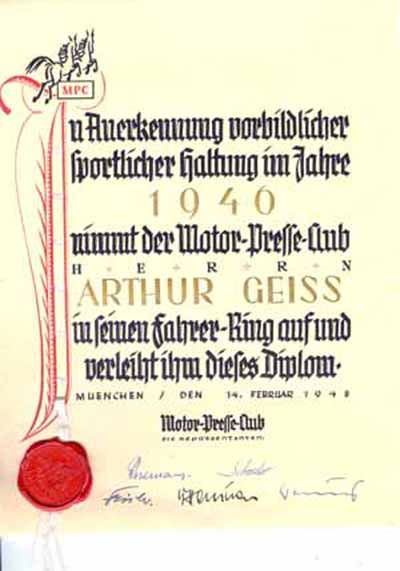 MPC
In Anerkennung vorbildlicher
sportlicher Haltung im Jahre
1946
nimmt der Motor-Presse-Club
H·E·R·R·N
ARTHUR GEISS
in seinen Fahrer-Ring auf und
verleiht ihm dieses Diplom·
MUENCHEN / DEN 14. FEBRUAR 1948
Motor-Presse-Club